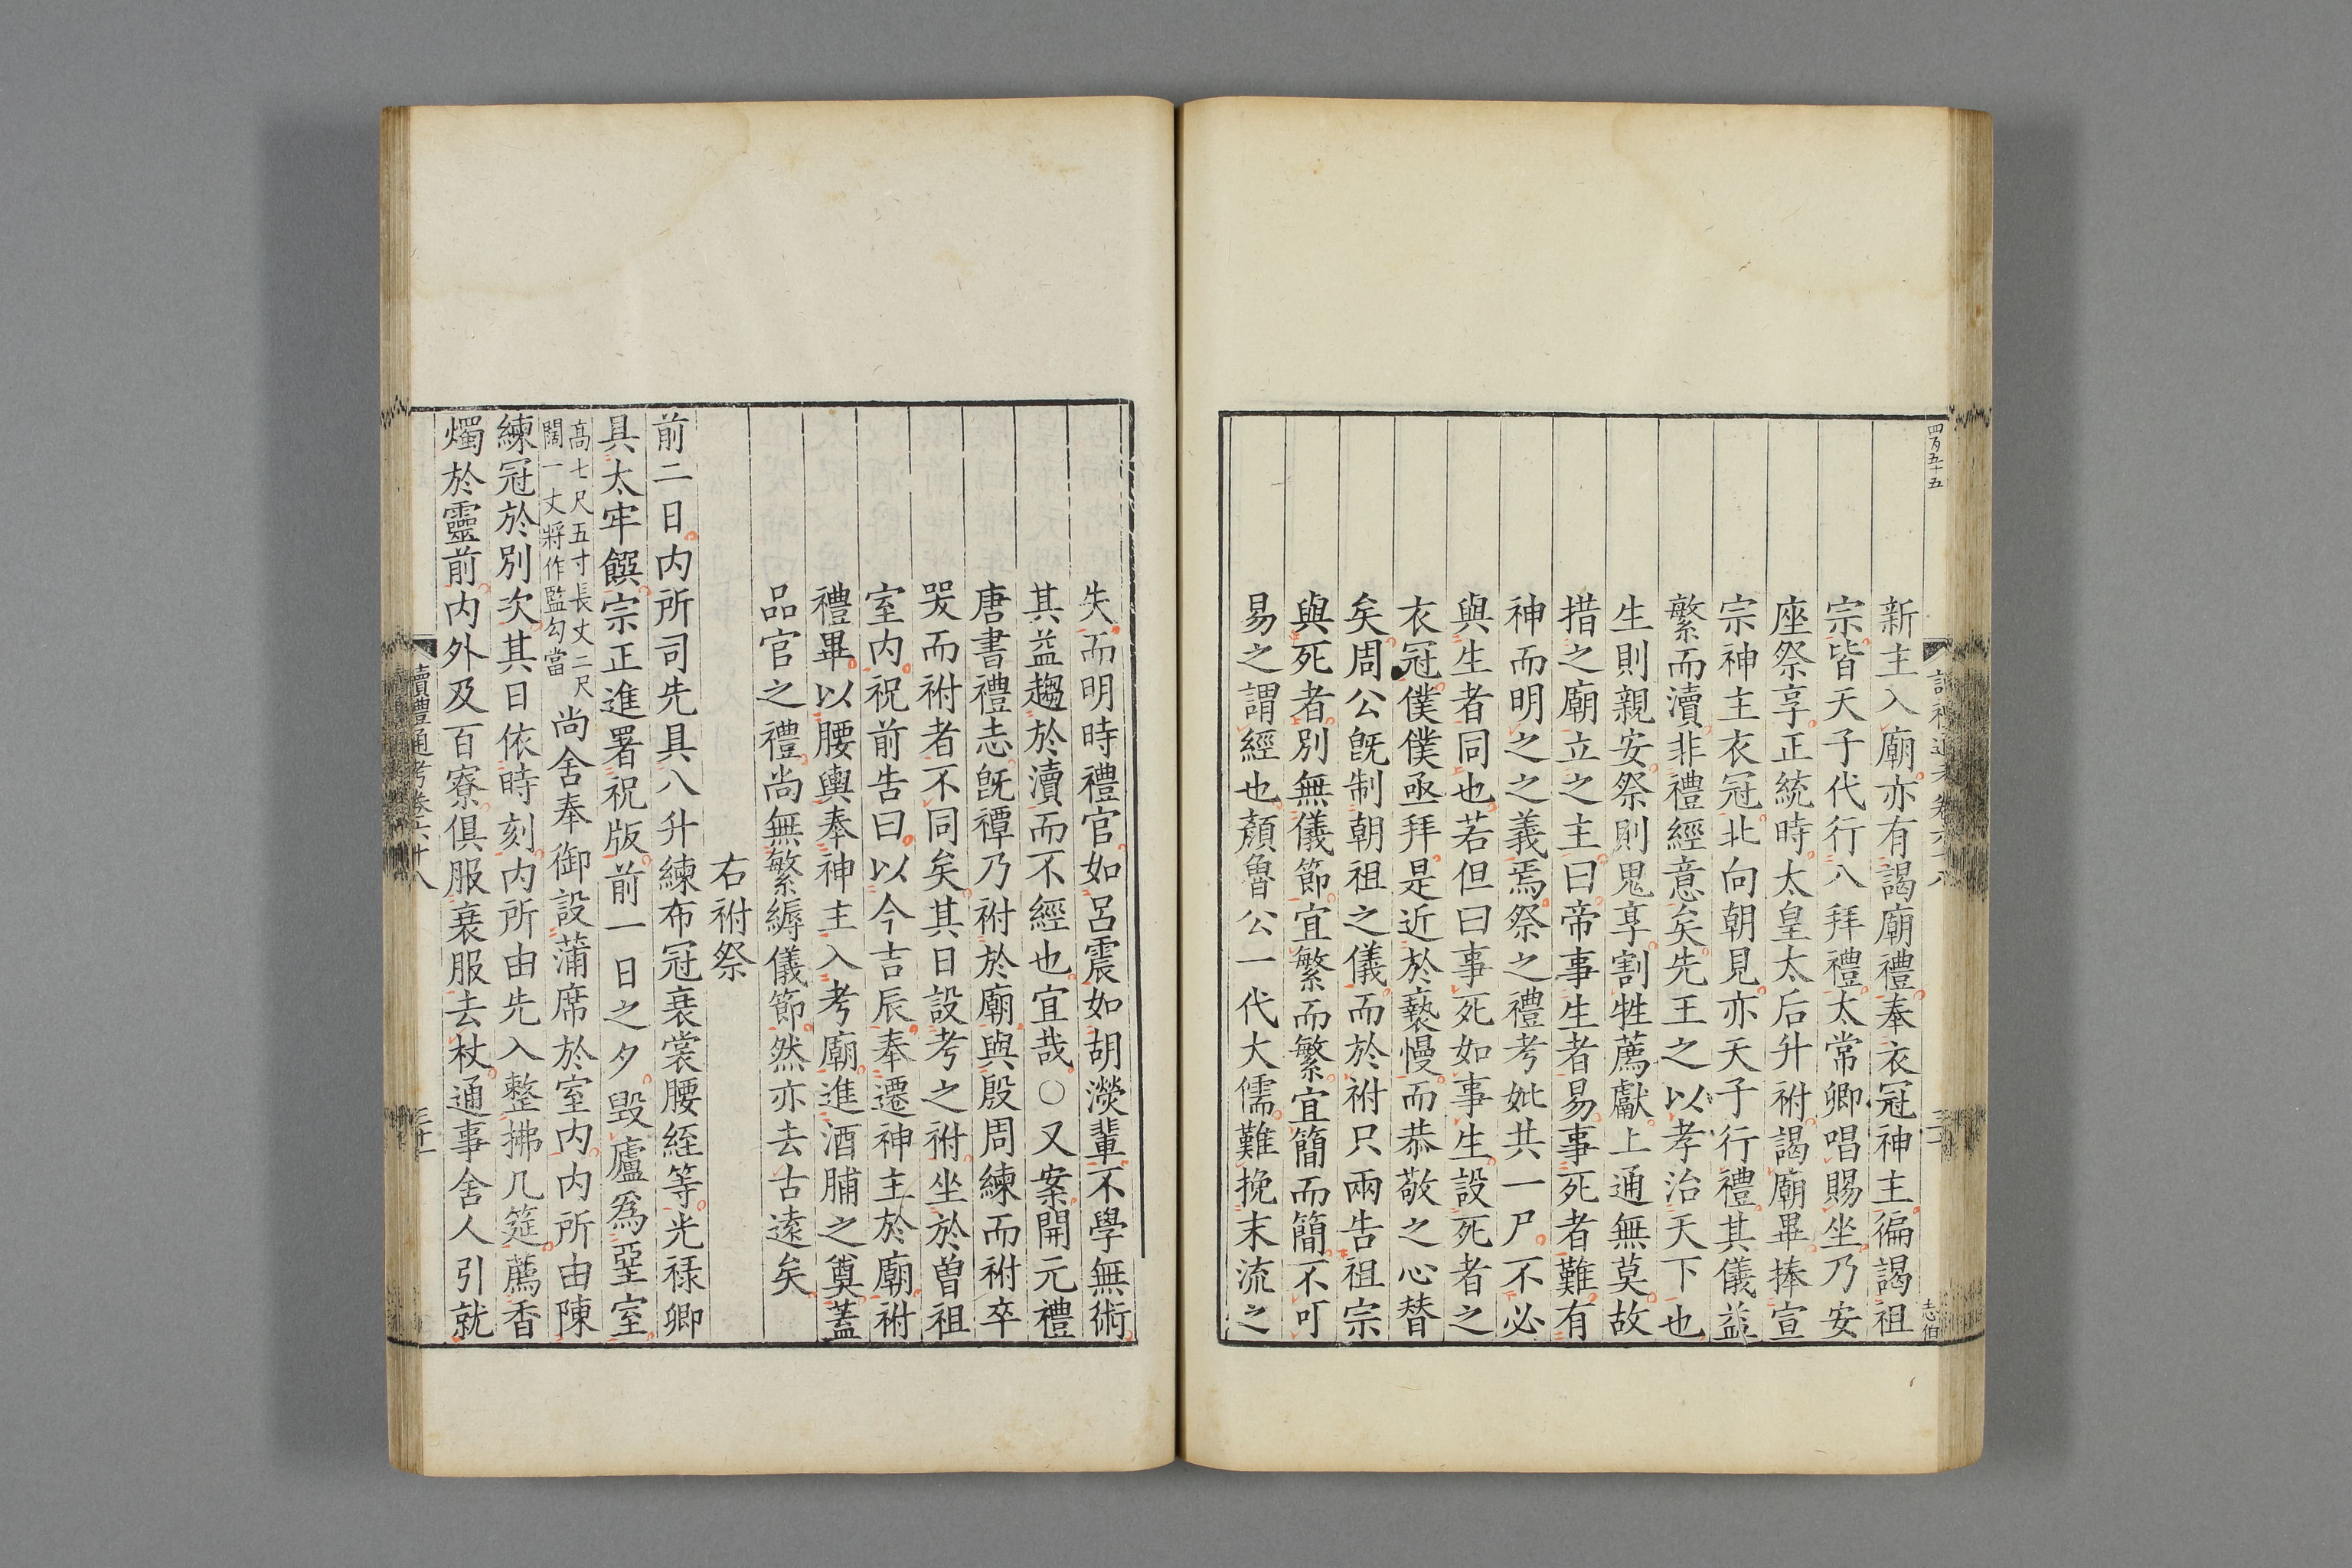 四百五十五
新主入廟亦有謁廟禮奉衣冠神主徧謁祖
宗皆天子代行八拜禮太常卿唱賜坐乃安
座祭享正統時太皇太后升祔謁廟畢捧宣
宗神主衣冠北向朝見亦天子行禮其儀益
繁而瀆非禮經意矣先王之以孝治天下也
生則親安祭則鬼享割牲薦獻上通無莫故
措之廟立之主曰帝事生者易事死者難有
神而明之之義焉祭之禮考妣共一尸不必
與生者同也若但曰事死如事生設死者之
衣冠僕僕亟拜是近於褻慢而恭敬之心替
矣周公旣制朝祖之儀而於祔只兩告祖宗
與死者別無儀節宜繁而繁宜簡而簡不可
易之謂經也顏魯公一代大儒難挽末流之
志伯
失而明時禮官如呂震如胡濙輩不學無術
其益趨於瀆而不經也宜哉○又案開元禮
唐書禮志旣禫乃祔於廟與殷周練而祔卒
哭而祔者不同矣其日設考之祔坐於曾祖
室内祝前告曰以今吉辰奉遷神主於廟祔
禮畢以腰輿奉神主入考廟進酒脯之奠蓋
品官之禮尚無繁縟儀節然亦去古遠矣
右祔祭
前二日内所司先具八升練布冠衰裳腰絰等光祿卿
具太牢饌宗正進署祝版前一日之夕毀廬爲堊室
高七尺五寸長丈二尺
闊一丈將作監勾當
尚舍奉御設蒲席於室内内所由陳
練冠於別次其日依時刻内所由先入整拂几筵薦香
燭於靈前内外及百寮俱服衰服去杖通事舍人引就
讀禮通考卷六十八